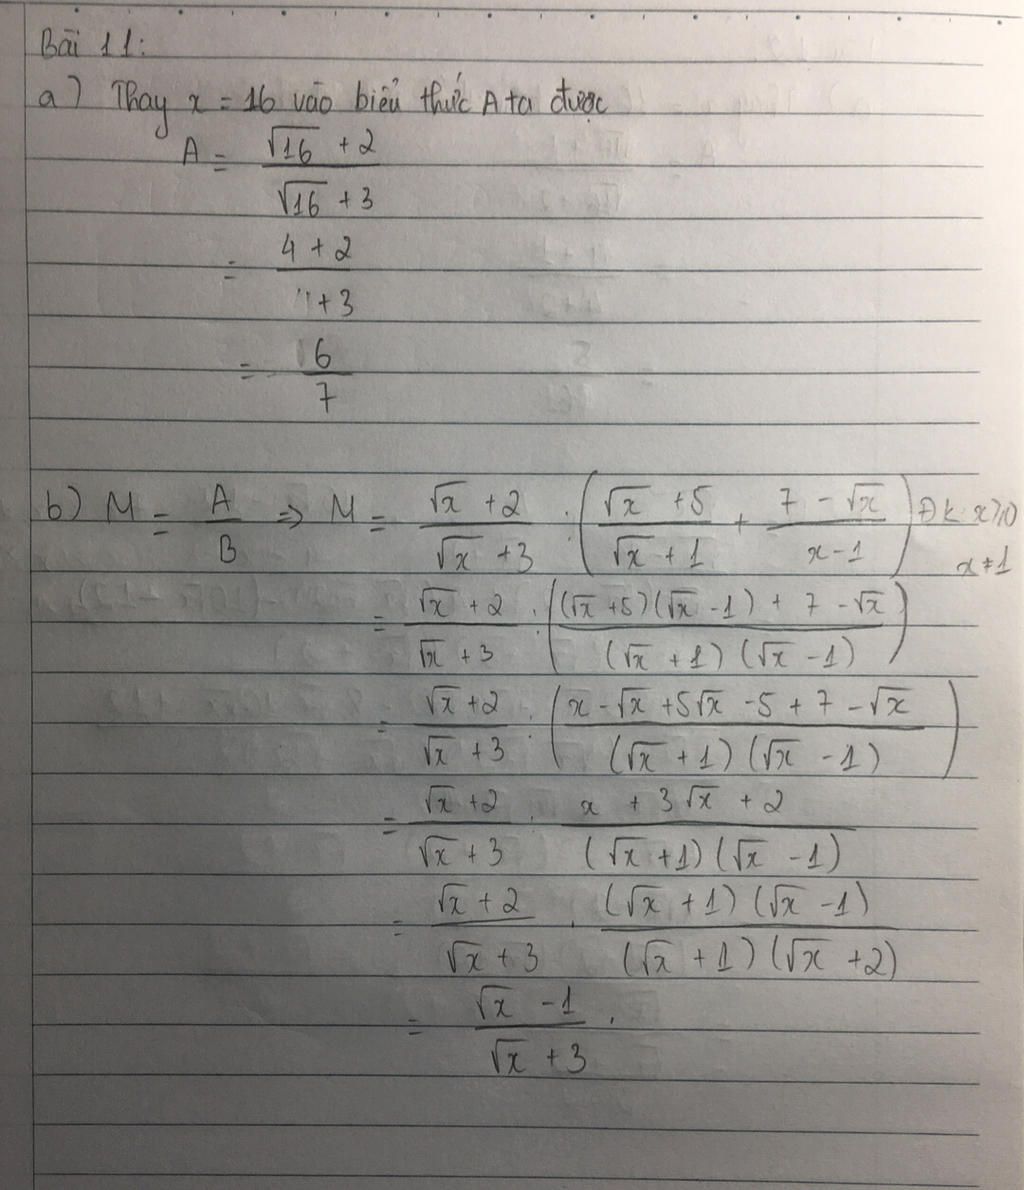 Bài 11:
a) Thay x = 16 vào biểu thức A ta được
A = (√16 + 2)/(√16 + 3)
= (4 + 2)/(4 + 3)
= 6/7
b) M = A/B => M = (√x + 2)/(√x + 3) : ((√x + 5)/(√x + 1) + (7 - √x)/(x - 1)) Đk: x ≥ 0 x ≠ 1
= (√x + 2)/(√x + 3) : (((√x + 5)(√x - 1) + 7 - √x)/((√x + 1)(√x - 1)))
= (√x + 2)/(√x + 3) : ((x - √x + 5√x - 5 + 7 - √x)/((√x + 1)(√x - 1)))
= (√x + 2)/(√x + 3) : (x + 3√x + 2)/((√x + 1)(√x - 1))
= (√x + 2)/(√x + 3) . ((√x + 1)(√x - 1))/((√x + 1)(√x + 2))
= (√x - 1)/(√x + 3) .